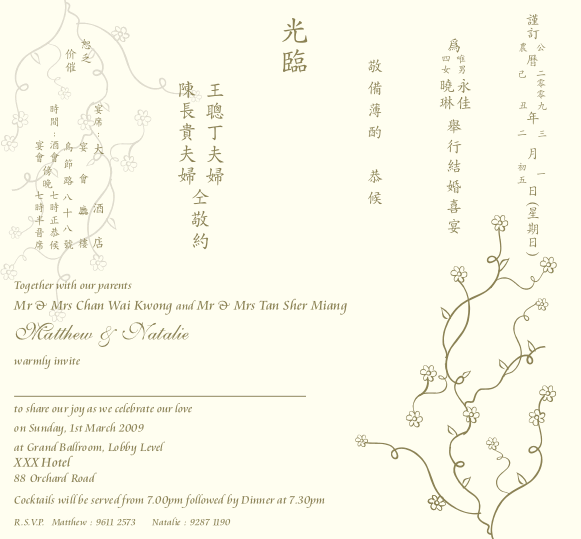 謹訂
公 二零零九年 三月 一日(星期日)
農曆 己丑 二 初五
為
唯男 永佳
四女 曉琳
舉行結婚喜宴
敬備薄酌 恭候
光臨
王聰丁夫婦
陳長貴夫婦
仝敬約
恕乏
价催
宴席:大 酒店
宴會廳 樓
烏節路八十八號
時間:酒會 傍晚七時正恭候
宴會 七時半 席
Together with our parents
Mr & Mrs Chan Wai Kwong and Mr & Mrs Tan Sher Miang
Matthew & Natalie
warmly invite
to share our joy as we celebrate our love
on Sunday, 1st March 2009
at Grand Ballroom, Lobby Level
XXX Hotel
88 Orchard Road
Cocktails will be served from 7.00pm followed by Dinner at 7.30pm
R.S.V.P. Matthew : 9611 2573 Natalie : 9287 1190